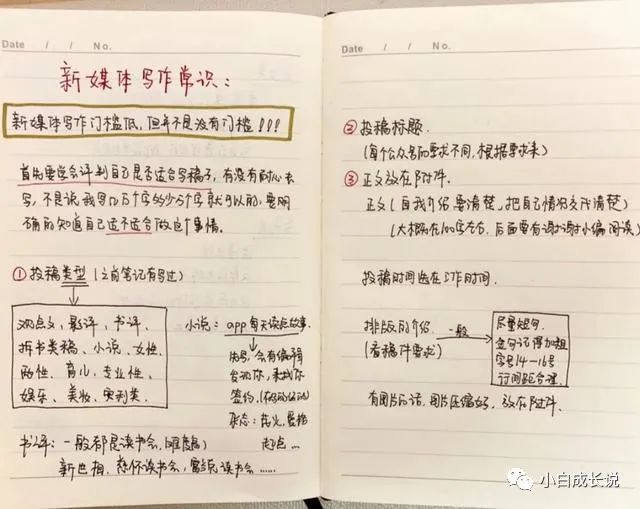 Date / / No.
新媒体写作常识:
新媒体写作门槛低,但并不是没有门槛!!!
首先要学会评判自己是否适合写稿子,有没有耐心去
写,不是说我写几百个字的少百个字就可以的,要明
确的知道自己适不适合做这个事情。
① 投稿类型(之前笔记有写过)
观点文、影评、书评、
拆书类稿、小说、女性、
两性、育儿、专业性、
娱乐、美妆、实利类.
小说:app每天读点故事.
内容,会有编辑
发现你,来找你
签约.
杂志:
书评:一般都是读书会,
新世相、慈怀读书会,富兰克读书会……
Date / / No.
② 投稿标题.
(每个公众号的要求不同,根据要求来)
③ 正文放在附件.
正文(自我介绍要清楚,把自己情况交待清楚)
(大概在100字左右,后面要有谢谢小编阅读)
投稿时间选在工作时间.
排版的介绍
(看稿件要求)
一般
尽量短句.
金句记得加粗
字号14-16号
行间距合理.
有图片的话,图片压缩好,放在附件.
小白成长说